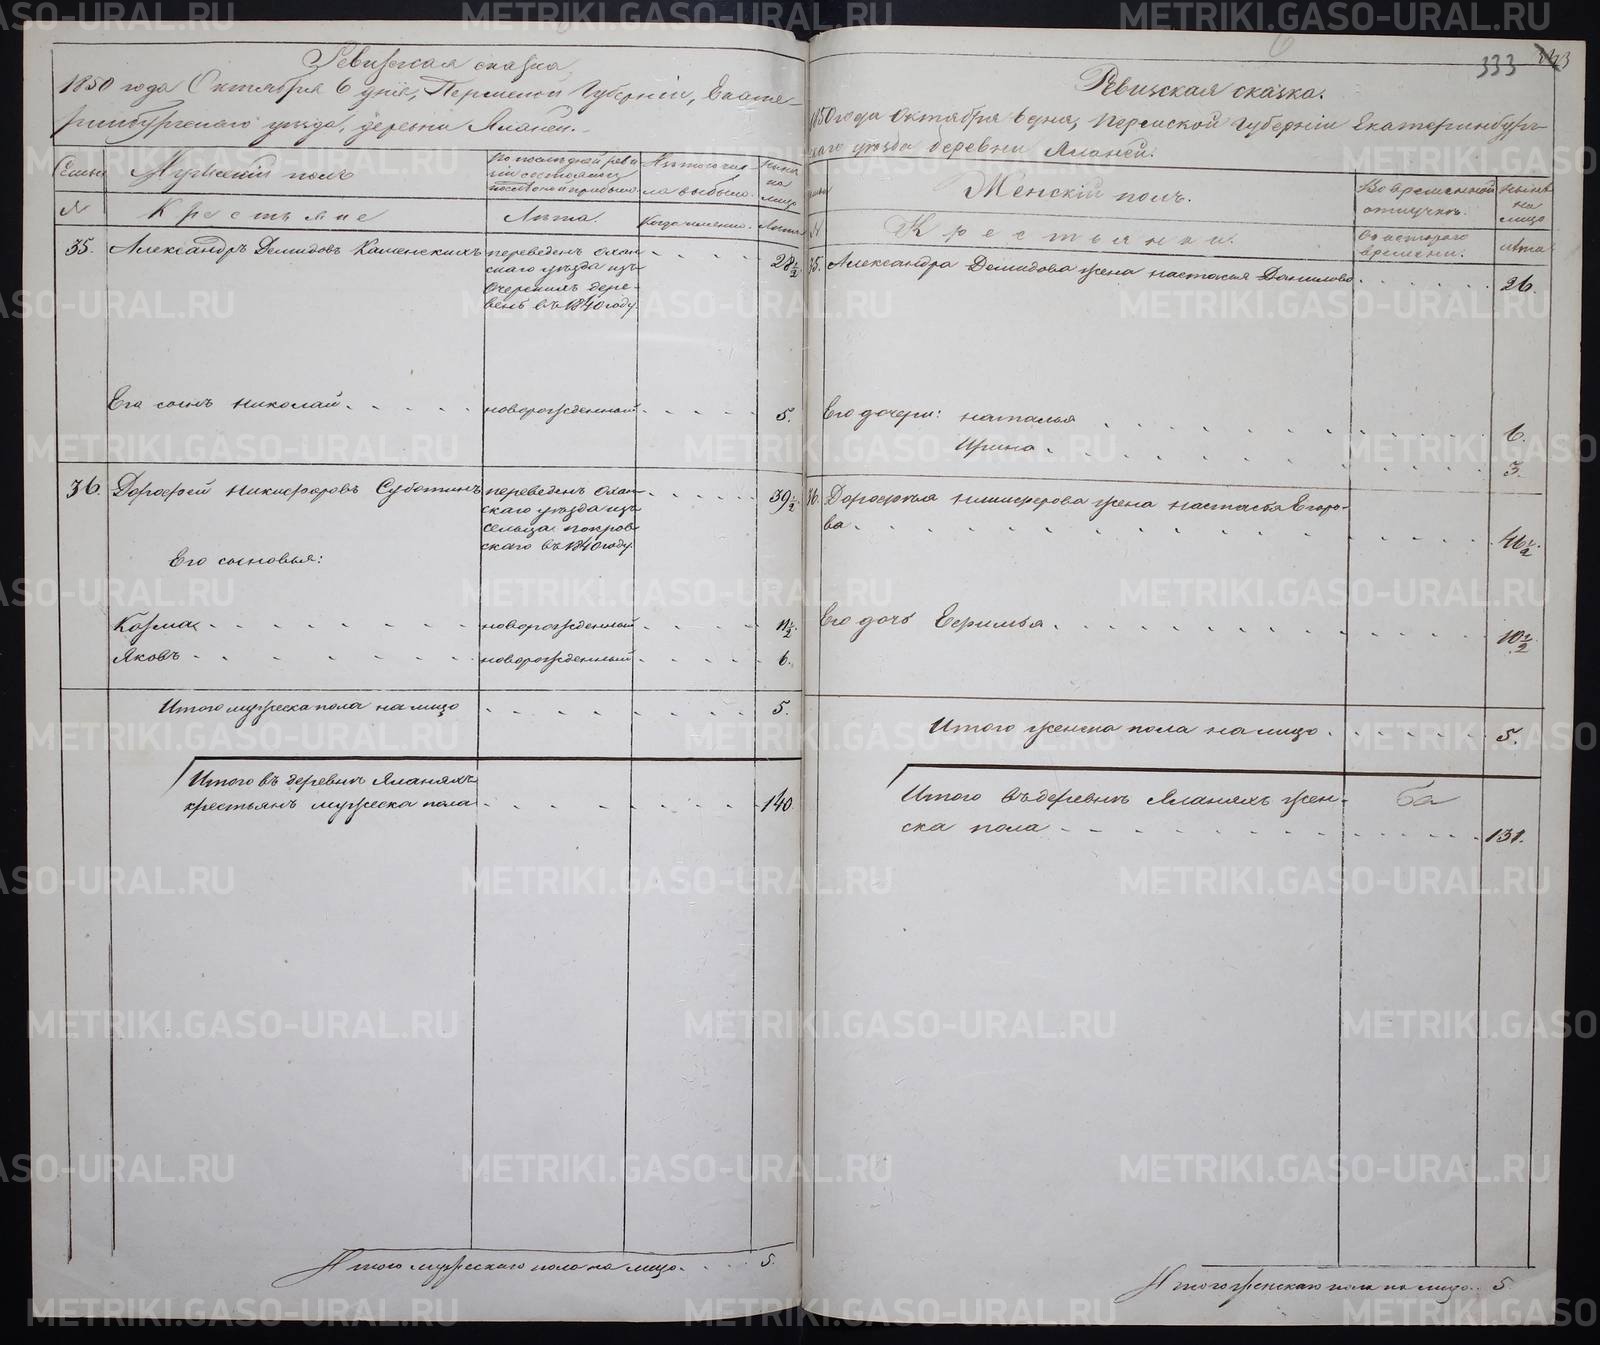 Ревизская сказка
1850 года Октября 6 дня, Пермской Губернiи, Екате-
ринбургскаго уѣзда, деревни Яланей.
Семьи
Мужескiй полъ
По последней реви
зiи состояло и
после оной прибыло
Изъ того чис
ла выбыло.
Ныне
на
лицо
№
Крестьяне
Лѣта.
Когда именно.
Лѣта
35.
Александръ Демидовъ Каменскихъ
переведенъ Охан
скаго уѣзда изъ
Очерскихъ дере-
вень въ 1840 году.
28½
Его сынъ Николай
новорожденный
5.
36.
Дорофей Никифоровъ Суботинъ
переведенъ Охан
скаго уѣзда изъ
сельца покров
скаго въ 1840 году.
39½
Его сыновья:
Козма
новорожденный
11½
Яковъ
новорожденный
6.
Итого мужеска пола на лицо
5.
Итого въ деревнѣ Яланяхъ
крестьянъ мужеска пола
140
Итого мужескаго пола на лицо
5.
333
Ревизская сказка.
1850 года Октября 6 дня, Пермской Губернiи Екатеринбург-
скаго уѣзда деревни Яланей.
Женскiй полъ.
Во временной
отлучкѣ.
Нынѣ
на
лицо
№
Крестьянки.
Съ котораго
времени.
Лѣта
35.
Александра Демидова жена настасья Данилова
26.
Его дочери: наталья
6.
Ирина
3.
36.
Дорофѣя Никифорова жена настасья Егоро-
ва
46½.
Его дочь Ефимья
10½
Итого женска пола на лицо
5.
Итого въ деревнѣ Яланяхъ жен-
ска пола
131.
Итого женскаго пола на лицо
5
METRIKI.GASO-URAL.RU